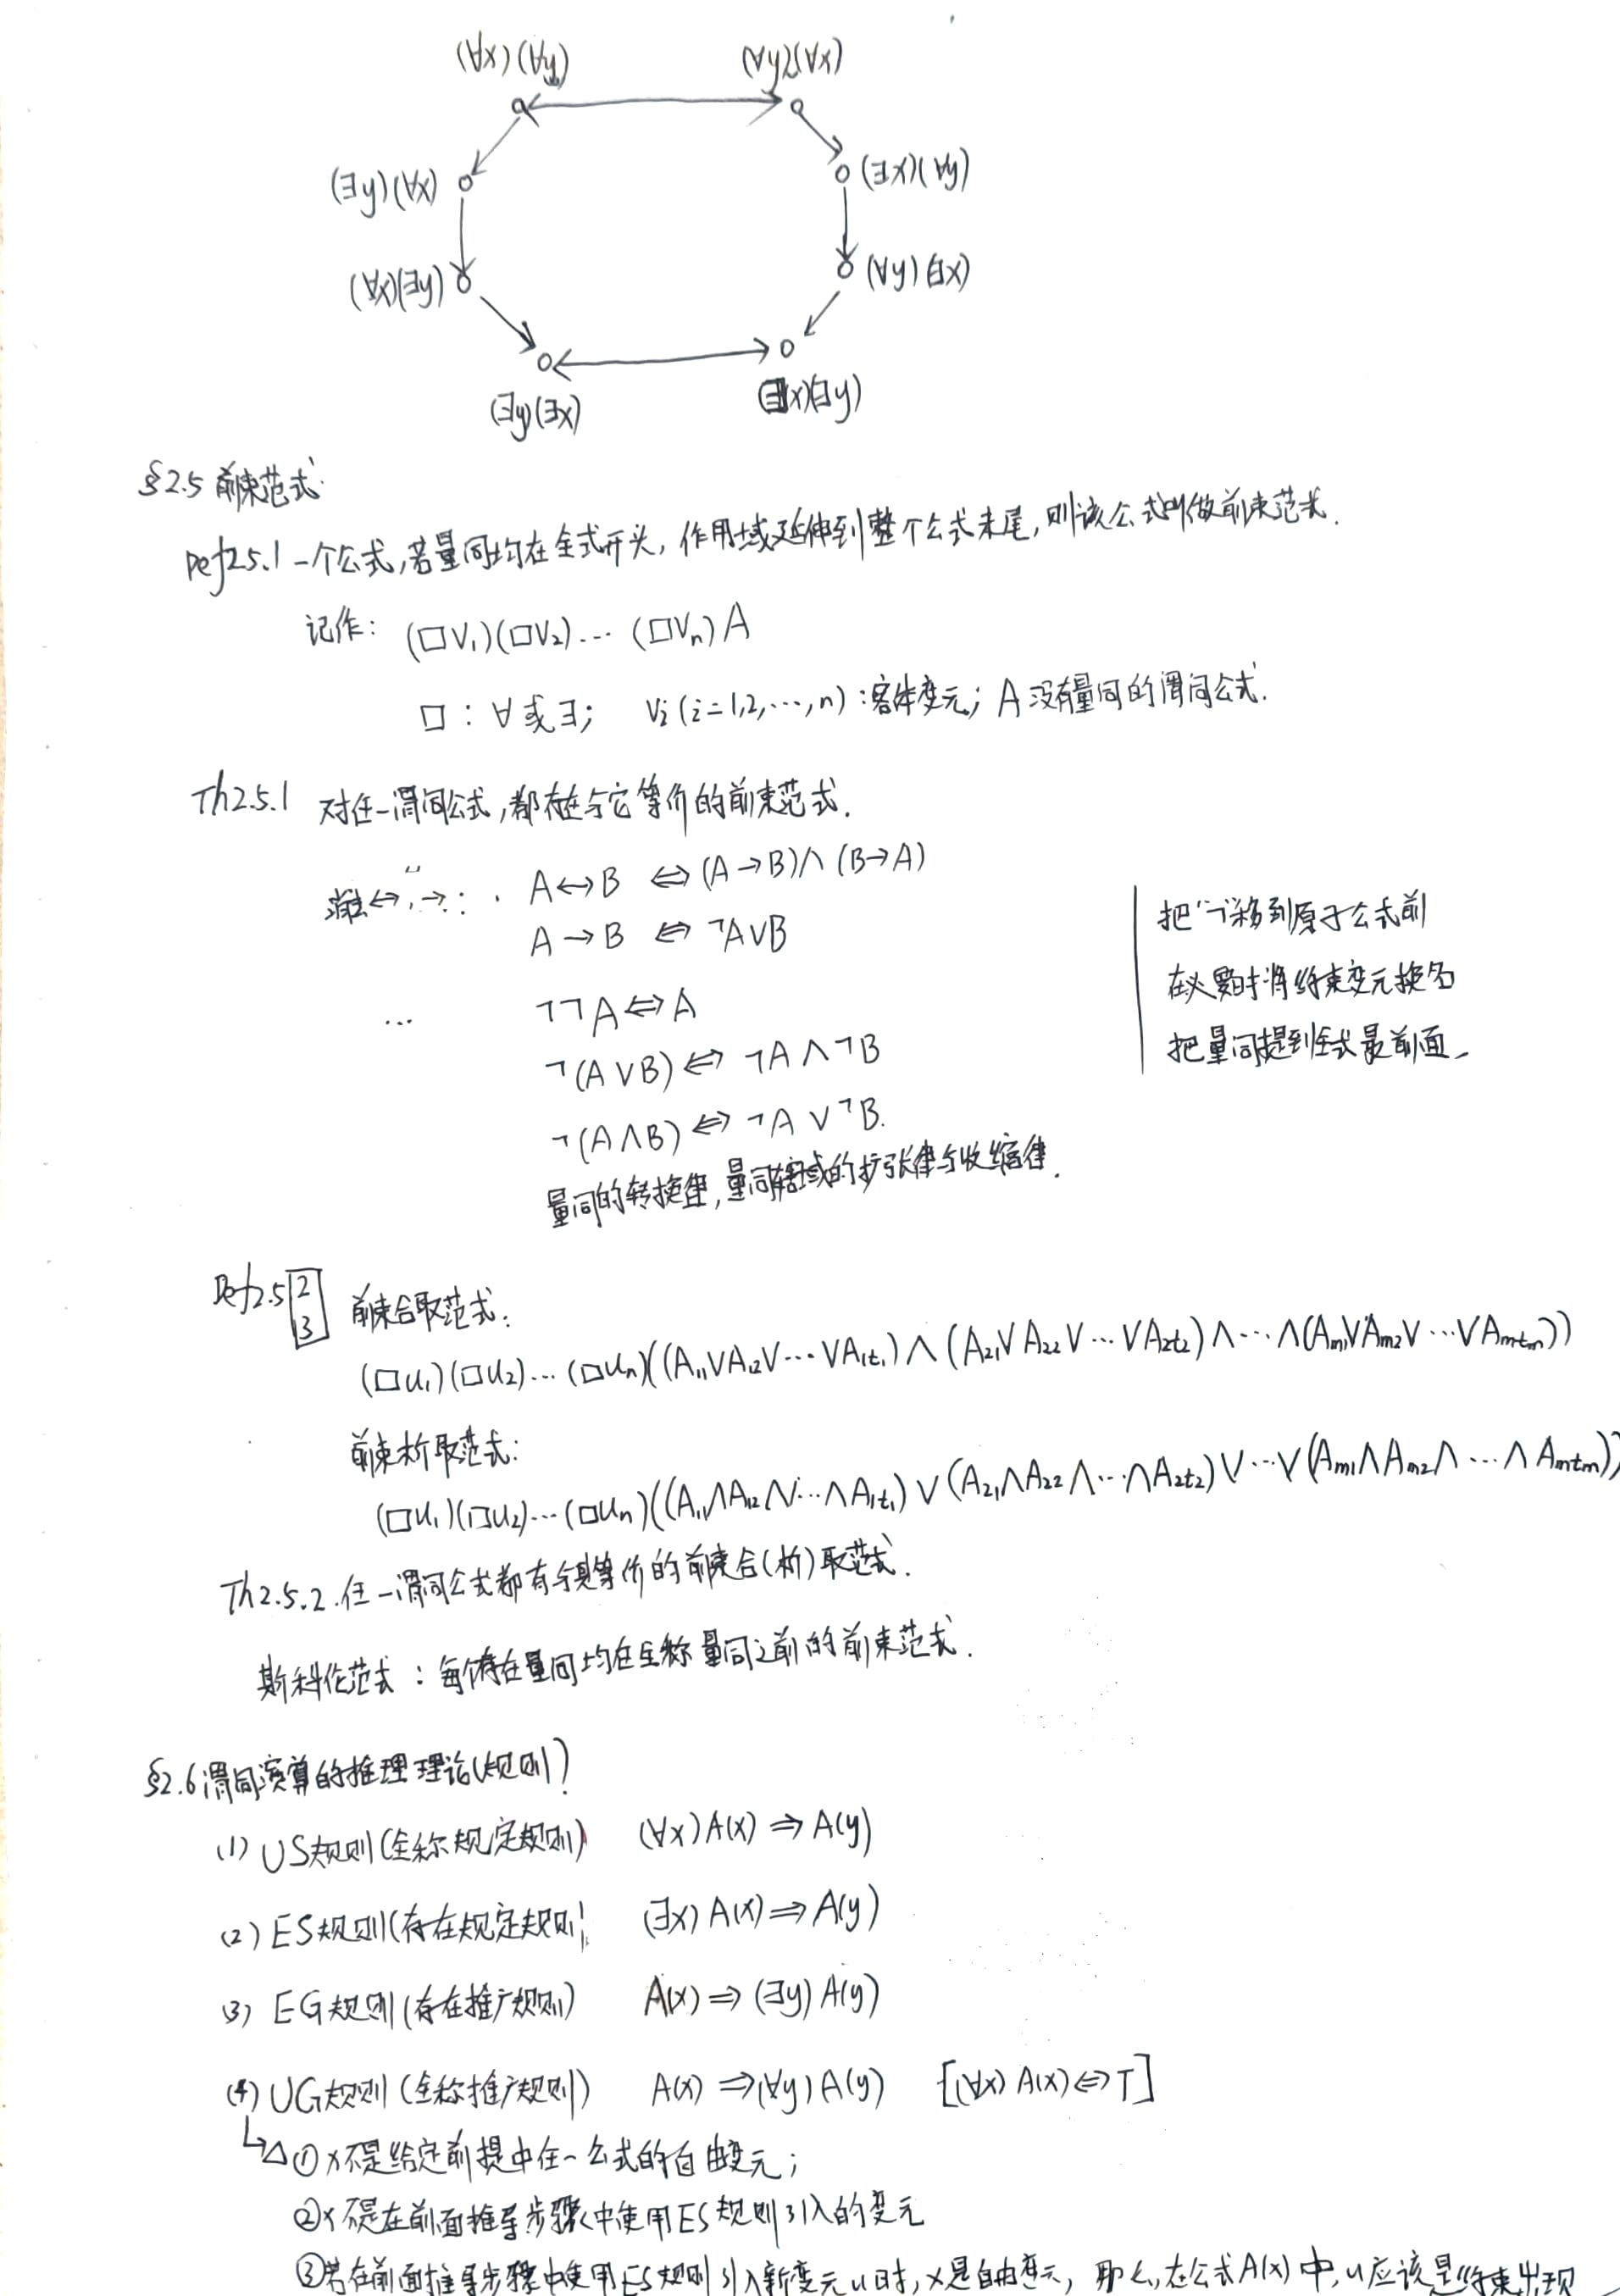 (∀x)(∀y) (∀y)(∀x)
(∃y)(∀x) (∃x)(∀y)
(∀x)(∃y) (∀y)(∃x)
(∃y)(∃x) (∃x)(∃y)
§2.5 前束范式
Def2.5.1 一个公式,若量词均在全式开头,作用域延伸到整个公式末尾,则该公式叫做前束范式.
记作: (□V₁)(□V₂)…(□Vₙ)A
□:∀或∃; Vᵢ(i=1,2,…,n):客体变元; A没有量词的谓词公式.
Th2.5.1 对任一谓词公式,都存在与它等价的前束范式.
消去↔,→: A↔B ⇔ (A→B)∧(B→A)
A→B ⇔ ¬A∨B
… ¬¬A⇔A
¬(A∨B)⇔ ¬A∧¬B
¬(A∧B)⇔ ¬A∨¬B.
量词的转换律,量词辖域的扩张律与收缩律.
把“¬”移到原子公式前
在必要时将约束变元换名
把量词提到全式最前面
Def2.5 2 3 前束合取范式:
(□u₁)(□u₂)…(□uₙ)((A₁₁∨A₁₂∨…∨A₁t₁)∧(A₂₁∨A₂₂∨…∨A₂t₂)∧…∧(Aₘ₁∨Aₘ₂∨…∨Aₘtₘ))
前束析取范式:
(□u₁)(□u₂)…(□uₙ)((A₁₁∧A₁₂∧…∧A₁t₁)∨(A₂₁∧A₂₂∧…∧A₂t₂)∨…∨(Aₘ₁∧Aₘ₂∧…∧Aₘtₘ))
Th2.5.2.任一谓词公式都有与其等价的前束合(析)取范式.
斯科伦范式:每个存在量词均在全称量词之前的前束范式.
§2.6谓词演算的推理理论(规则)
(1) US规则(全称规定规则) (∀x)A(x)⇒A(y)
(2) ES规则(存在规定规则) (∃x)A(x)⇒A(y)
(3) EG规则(存在推广规则) A(x)⇒(∃y)A(y)
(4) UG规则(全称推广规则) A(x)⇒(∀y)A(y) [(∀x)A(x)⇔T]
△①x不是给定前提中任一公式的自由变元;
②x不是在前面推导步骤中使用ES规则引入的变元
③若在前面推导步骤中使用ES规则引入新变元u时,x是自由变元,那么,在公式A(x)中,u应该是约束出现